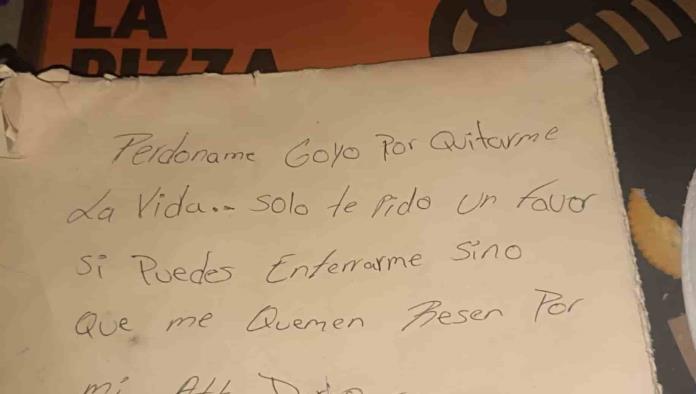 LA
PIZZA
Perdoname Goyo Por Quitarme
La Vida.. solo te Pido un Favor
si Puedes Enterrarme sino
Que me Quemen Resen Por
mi Att